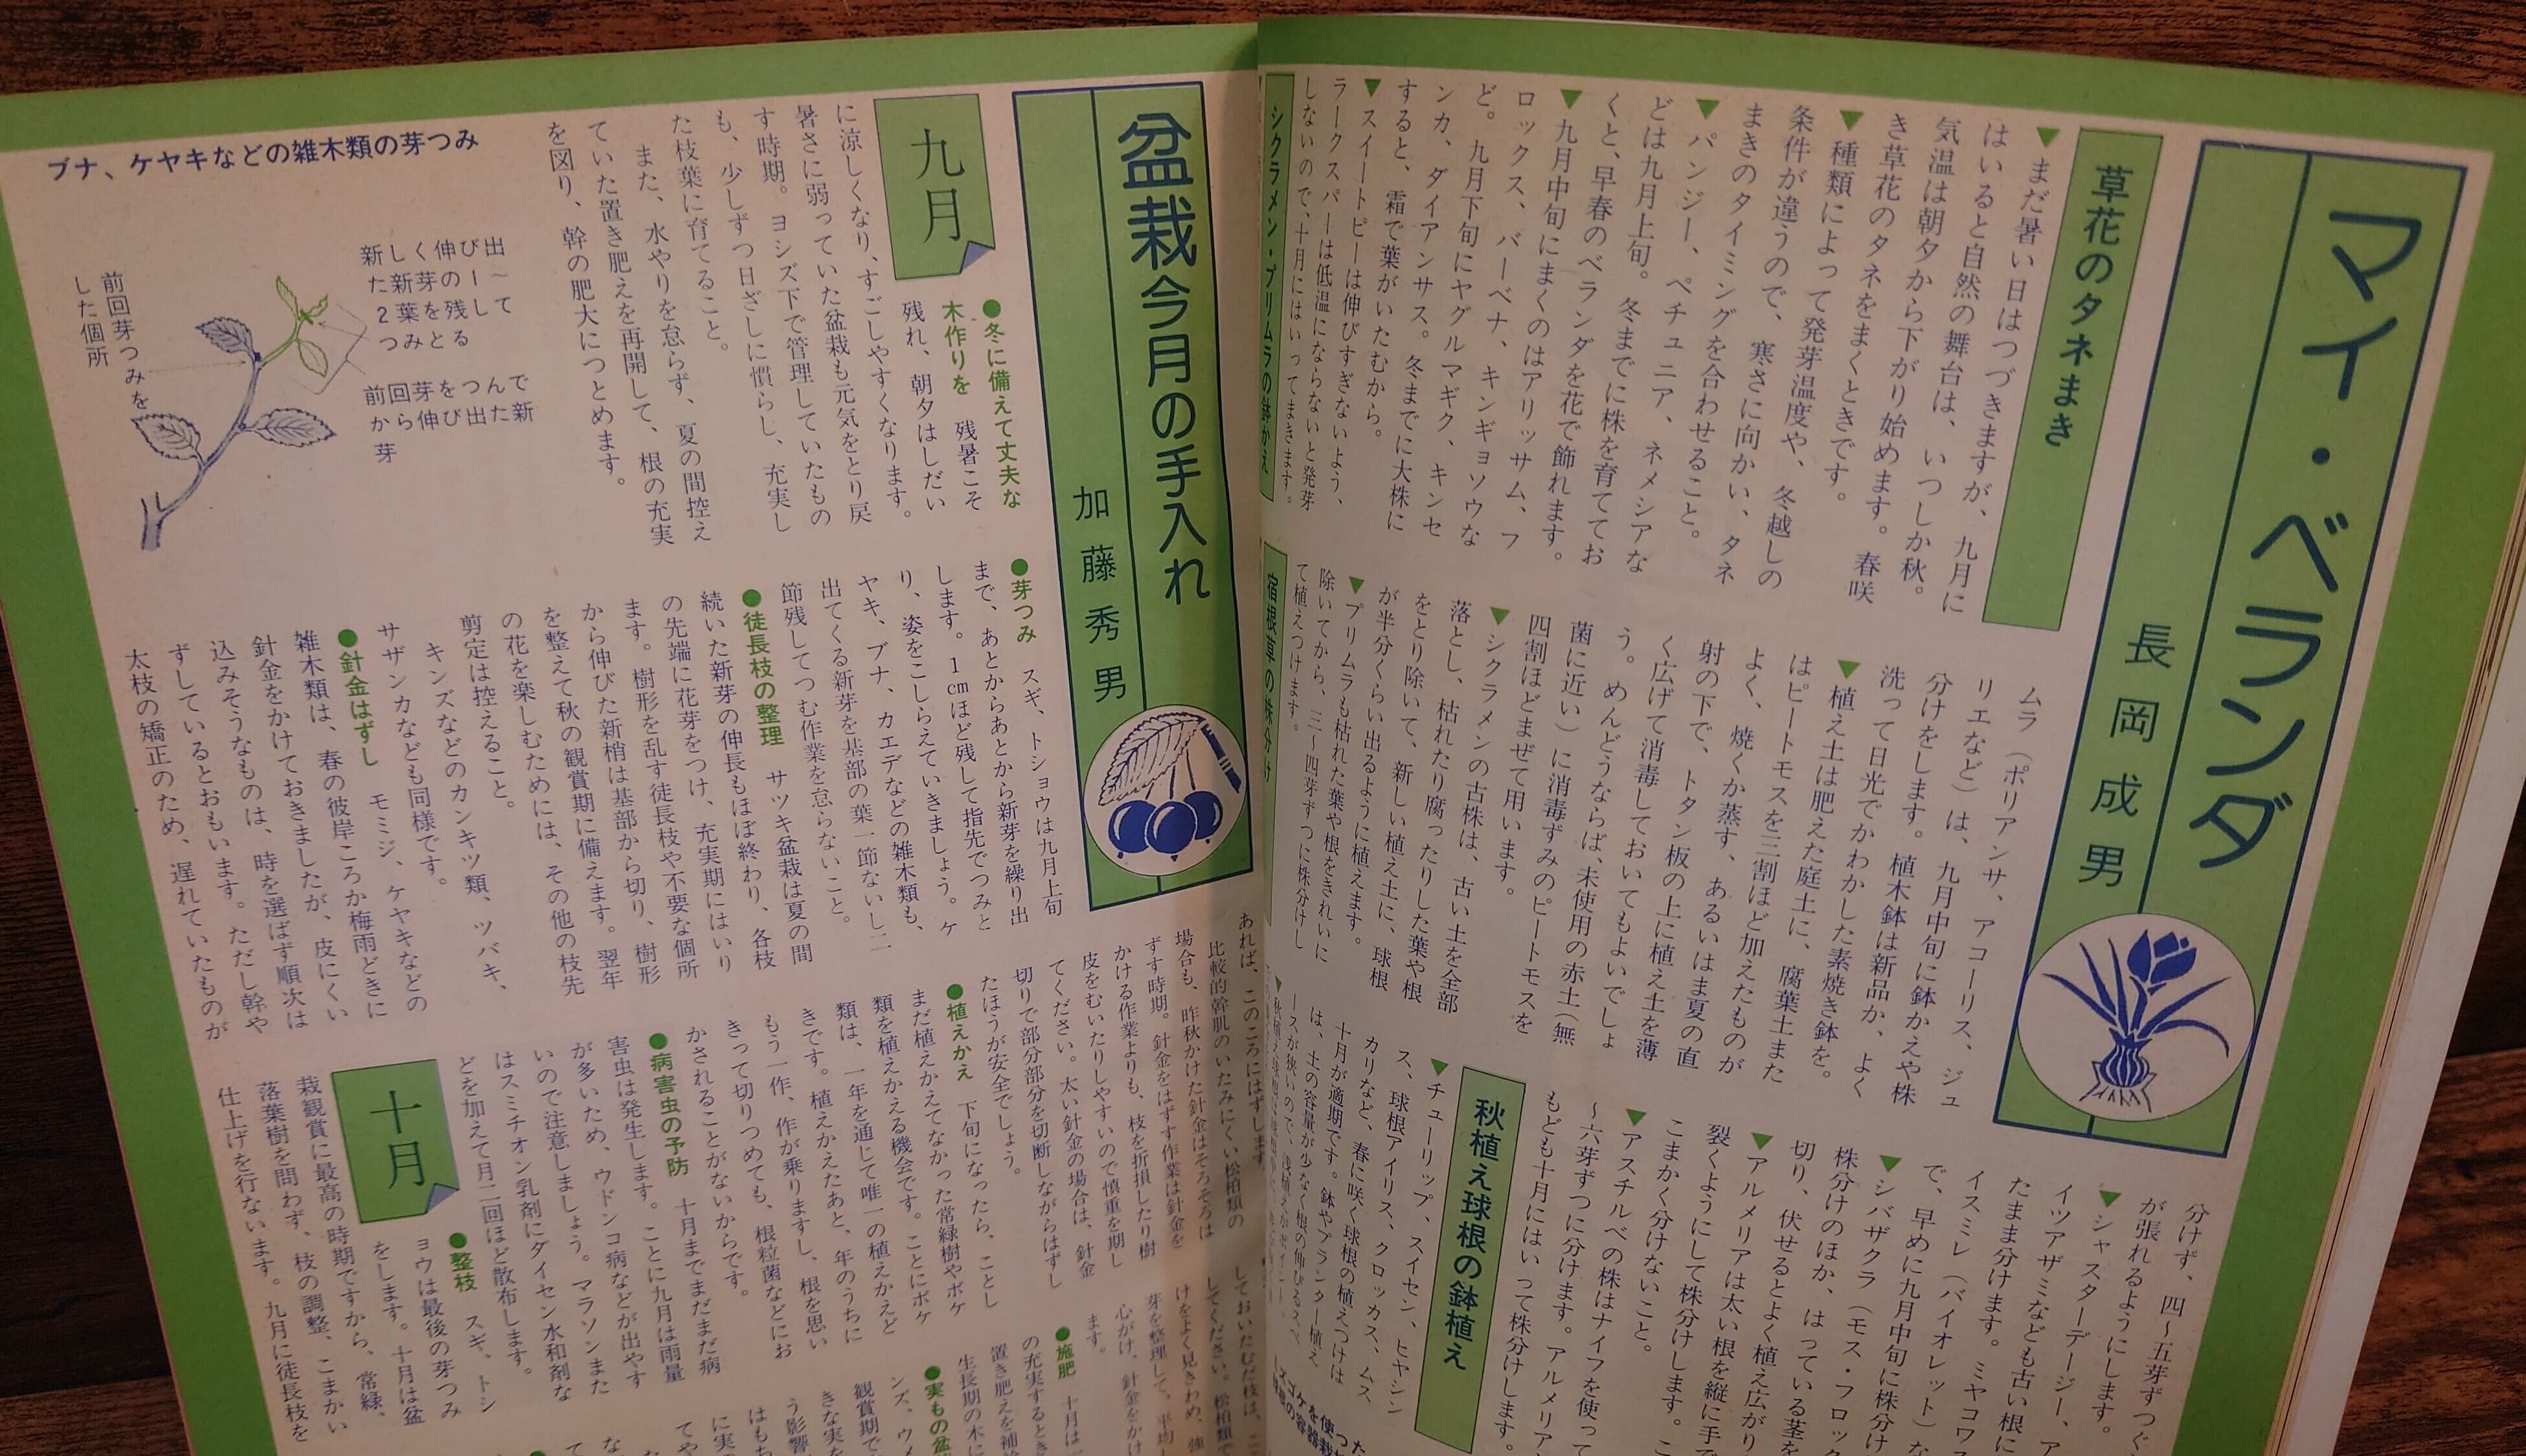 マイ・ベランダ
長岡成男
草花のタネまき
▼まだ暑い日はつづきますが、九月に
はいると自然の舞台は、いつしか秋。
気温は朝夕から下がり始めます。春咲
き草花のタネをまくときです。
▼種類によって発芽温度や、冬越しの
条件が違うので、寒さに向かい、タネ
まきのタイミングを合わせること。
▼パンジー、ペチュニア、ネメシアな
どは九月上旬。冬までに株を育ててお
くと、早春のベランダを花で飾れます。
▼九月中旬にまくのはアリッサム、フ
ロックス、バーベナ、キンギョソウな
ど。九月下旬にヤグルマギク、キンセ
ンカ、ダイアンサス。冬までに大株に
すると、霜で葉がいたむから。
▼スイートピーは伸びすぎないよう、
ラークスパーは低温にならないと発芽
しないので、十月にはいってまきます。
シクラメン・プリムラの鉢かえ
ムラ（ポリアンサ、アコーリス、ジュ
リエなど）は、九月中旬に鉢かえや株
分けをします。植木鉢は新品か、よく
洗って日光でかわかした素焼き鉢を。
▼植え土は肥えた庭土に、腐葉土また
はピートモスを三割ほど加えたものが
よく、焼くか蒸す、あるいはま夏の直
射の下で、トタン板の上に植え土を薄
く広げて消毒しておいてもよいでしょ
う。めんどうならば、未使用の赤土（無
菌に近い）に消毒ずみのピートモスを
四割ほどまぜて用います。
▼シクラメンの古株は、古い土を全部
落とし、枯れたり腐ったりした葉や根
をとり除いて、新しい植え土に、球根
が半分くらい出るように植えます。
▼プリムラも枯れた葉や根をきれいに
除いてから、三〜四芽ずつに株分けし
て植えつけます。
宿根草の株分け
分けず、四〜五芽ずつぐ
が張れるようにします。
▼シャスターデージー、ア
イツアザミなども古い根に
たまま分けます。ミヤコワス
イスミレ（バイオレット）な
で、早めに九月中旬に株分け
▼シバザクラ（モス・フロック
株分けのほか、はっている茎を
切り、伏せるとよく植え広がり
▼アルメリアは太い根を縦に手で
裂くようにして株分けします。こ
こまかく分けないこと。
▼アスチルベの株はナイフを使って
〜六芽ずつに分けます。アルメリア、
もども十月にはいって株分けします。
秋植え球根の鉢植え
▼チューリップ、スイセン、ヒヤシン
ス、球根アイリス、クロッカス、ムス
カリなど、春に咲く球根の植えつけは
十月が適期です。鉢やプランター植え
は、土の容量が少なく根の伸びるスペ
盆栽今月の手入れ
加藤秀男
九月
●冬に備えて丈夫な
木作りを　残暑こそ
残れ、朝夕はしだい
に涼しくなり、すごしやすくなります。
暑さに弱っていた盆栽も元気をとり戻
す時期。ヨシズ下で管理していたもの
も、少しずつ日ざしに慣らし、充実し
た枝葉に育てること。
また、水やりを怠らず、夏の間控え
ていた置き肥えを再開して、根の充実
を図り、幹の肥大につとめます。
ブナ、ケヤキなどの雑木類の芽つみ
新しく伸び出
た新芽の1〜
2葉を残して
つみとる
前回芽をつんで
から伸び出た新
芽
前回芽つみを
した個所
●芽つみ　スギ、トショウは九月上旬
まで、あとからあとから新芽を繰り出
します。1cmほど残して指先でつみと
り、姿をこしらえていきましょう。ケ
ヤキ、ブナ、カエデなどの雑木類も、
出てくる新芽を基部の葉一節ないし二
節残してつむ作業を怠らないこと。
●徒長枝の整理　サツキ盆栽は夏の間
続いた新芽の伸長もほぼ終わり、各枝
の先端に花芽をつけ、充実期にはいり
ます。樹形を乱す徒長枝や不要な個所
から伸びた新梢は基部から切り、樹形
を整えて秋の観賞期に備えます。翌年
の花を楽しむためには、その他の枝先
剪定は控えること。
キンズなどのカンキツ類、ツバキ、
サザンカなども同様です。
●針金はずし　モミジ、ケヤキなどの
雑木類は、春の彼岸ころか梅雨どきに
針金をかけておきましたが、皮にくい
込みそうなものは、時を選ばず順次は
ずしているとおもいます。ただし幹や
太枝の矯正のため、遅れていたものが
あれば、このころにはずします。
比較的幹肌のいたみにくい松柏類の
場合も、昨秋かけた針金はそろそろは
ずす時期。針金をはずす作業は針金を
かける作業よりも、枝を折損したり樹
皮をむいたりしやすいので慎重を期し
てください。太い針金の場合は、針金
切りで部分部分を切断しながらはずし
たほうが安全でしょう。
●植えかえ　下旬になったら、ことし
まだ植えかえてなかった常緑樹やボケ
類を植えかえる機会です。ことにボケ
類は、一年を通じて唯一の植えかえど
きです。植えかえたあと、年のうちに
もう一作、作が乗りますし、根を思い
きって切りつめても、根粒菌などにお
かされることがないからです。
●病害虫の予防　十月までまだまだ病
害虫は発生します。ことに九月は雨量
が多いため、ウドンコ病などが出やす
いので注意しましょう。マラソンまた
はスミチオン乳剤にダイセン水和剤な
どを加えて月二回ほど散布します。
十月
●整枝　スギ、トシ
ョウは最後の芽つみ
をします。十月は盆
栽観賞に最高の時期ですから、常緑、
落葉樹を問わず、枝の調整、こまかい
仕上げを行ないます。九月に徒長枝を
しておいたむだ枝は、こ
してください。松柏類で
けをよく見きわめ、強
芽を整理して、平均し
心がけ、針金をかけ
ます。
●施肥　十月は
の充実するとき
置き肥えを補
生長期の木に
●実もの盆
ンズ、ウメ
観賞期で
きな実を
う影響
はもち
に実
てや